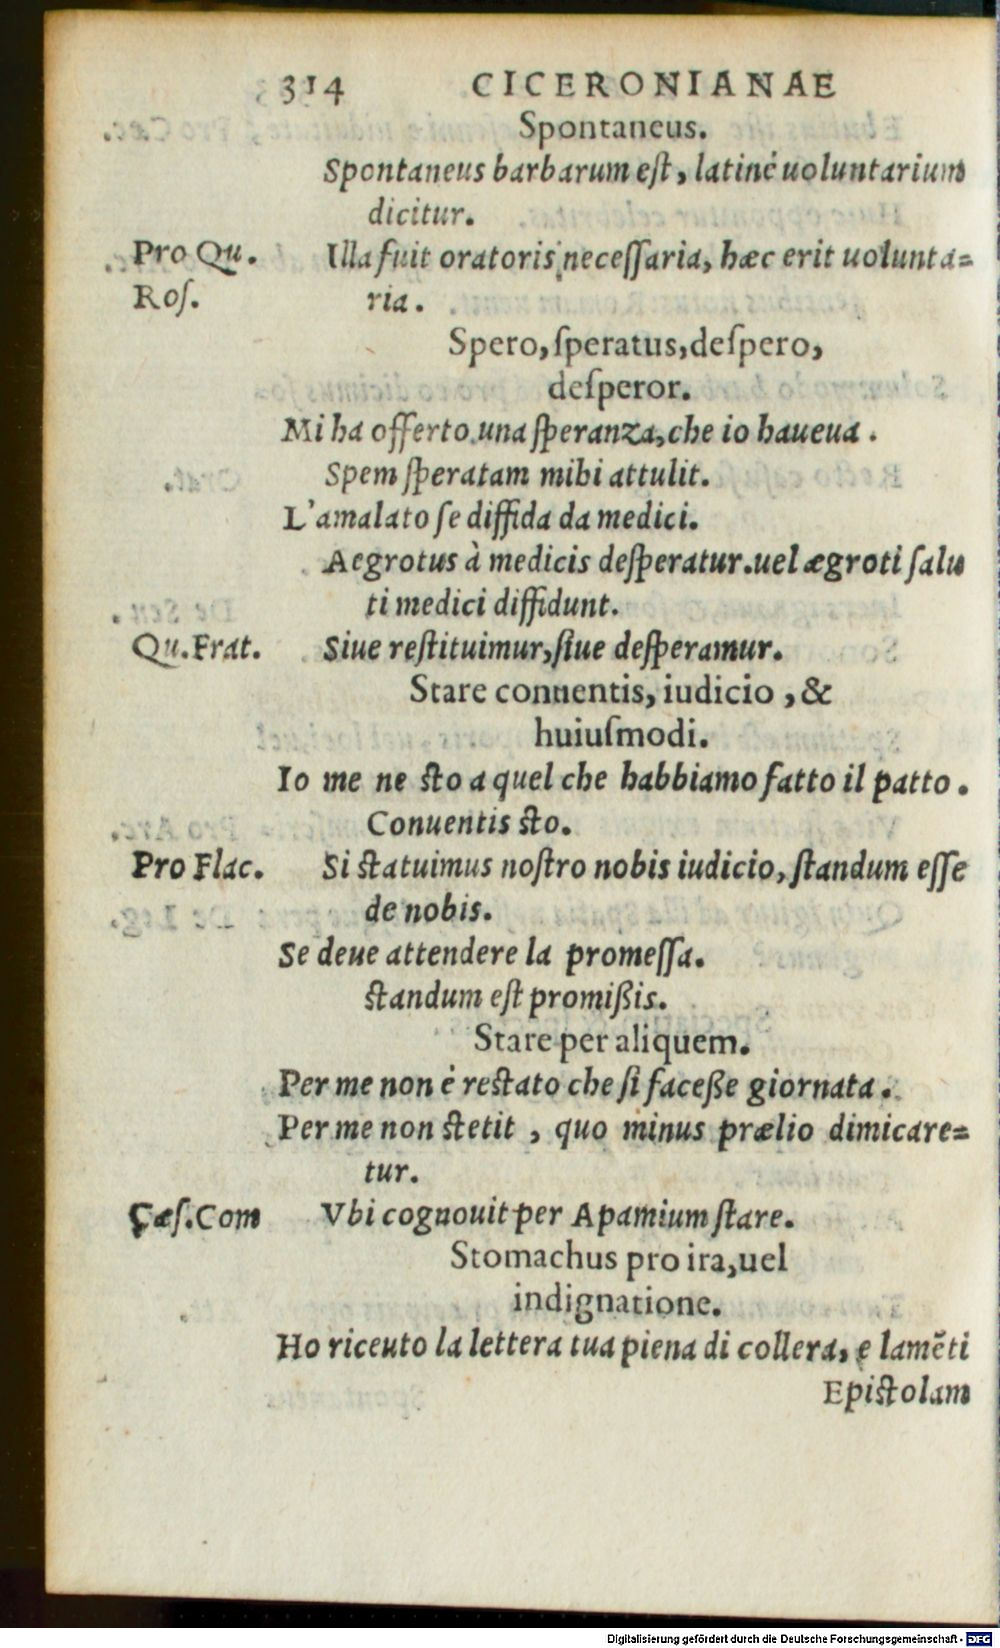 314 CICERONIANAE
Spontaneus.
Spontaneus barbarum eſt, latinè uoluntarium
dicitur.
Pro Qu. Illa fuit oratoris neceſſaria, hæc erit uolunta=
Roſ. ria.
Spero, ſperatus, deſpero,
deſperor.
Mi ha offerto una ſperanza, che io haueua.
Spem ſperatam mihi attulit.
L'amalato ſe diffida da medici.
Aegrotus à medicis deſperatur. uel ægroti ſalu
ti medici diffidunt.
Qu. Frat. Siue reſtituimur, ſiue deſperamur.
Stare conuentis, iudicio, &
huiuſmodi.
Io me ne ſto a quel che habbiamo fatto il patto.
Conuentis ſto.
Pro Flac. Si ſtatuimus noſtro nobis iudicio, ſtandum eſſe
de nobis.
Se deue attendere la promeſſa.
ſtandum eſt promißis.
Stare per aliquem.
Per me non è reſtato che ſi faceße giornata.
Per me non ſtetit, quo minus prælio dimicare=
tur.
Cæſ. Com Vbi cognouit per Apamium ſtare.
Stomachus pro ira, uel
indignatione.
Ho riceuto la lettera tua piena di collera, e lamẽti
Epiſtolam
Digitalisierung gefördert durch die Deutsche Forschungsgemeinschaft - DFG